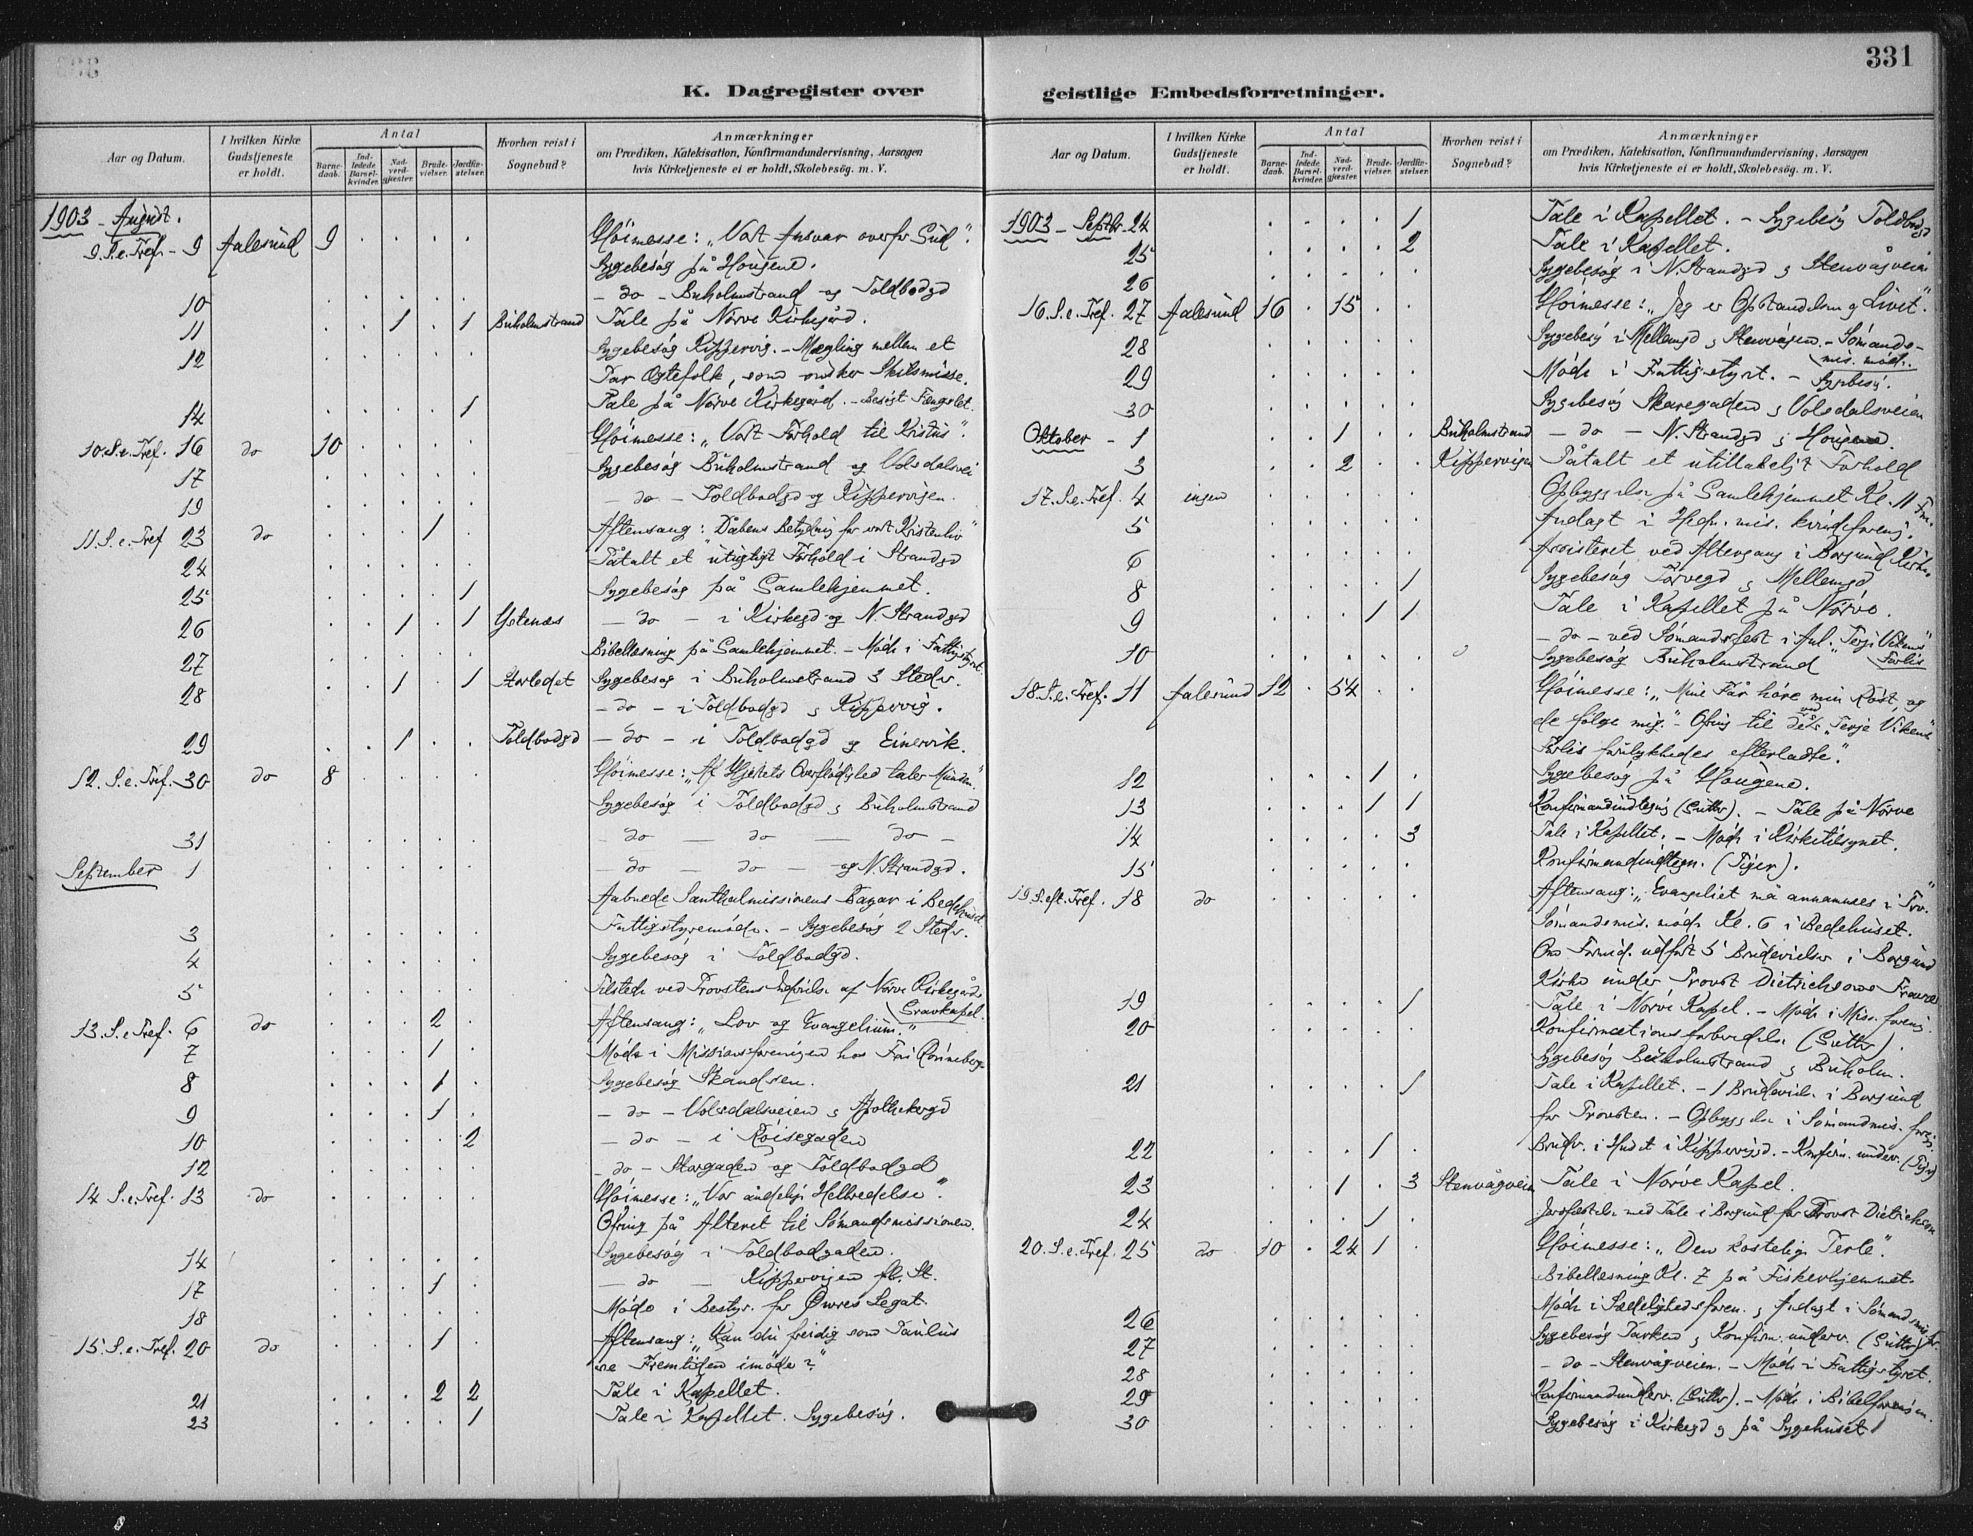 331
K. Dagregister over geistlige Embedsforretninger.
Aar og Datum.
I hvilken Kirke Gudstjeneste er holdt.
Antal
Barnedaab.
Indledede Barselkvinder.
Nadverdgjæster.
Brudevielser.
Jordfæstelser.
Hvorhen reist i Sognebud?
Anmærkninger
om Prædiken, Katekisation, Konfirmandundervisning, Aarsagen
hvis Kirketjeneste ei er holdt, Skolebesøg. m. V.
1903 - August.
9.S.e.Tref. - 9 Aalesund 9 . . . . Høimesse: "Vort Ansvar overfor Gud".
Sygebesøg på Hougene.
10 . . . . . - do - Buholmstrand og Toldbodgd
11 . . 1 . 1 Buholmstrand Tale på Nørve Kirkegård.
12 . . . . . Sygebesøg Kippervig. - Mægling mellem et
Par Ægtefolk, som ønsker Skilsmisse.
14 . . . . 1 Tale på Nørve Kirkegård. - Besøgt Fængslet.
10.S.e.Tref. 16 do 10 . . . . Høimesse: "Vort Forhold til Kristus".
17 . . . . . Sygebesøg Buholmstrand og Volsdalsvei
19 . . . . . - do - Toldbodgd og Kippervigen.
11.S.e.Tref 23 do . . . 1 . Aftensang: "Dåbens Betydnig for vort Kristenliv"
24 . . . . . Påtalt et utugtigt Forhold i Strandgd
25 . . . . 1 Sygebesøg på Samlehjemmet.
26 . . 1 . 1 Ystenæs - do - i Kirkegd og N. Strandgd
27 . . . . . Bibellæsning på Samlehjemmet. - Møde i Fattigstyret.
28 . . 1 . 1 Storledet Sygebesøg i Buholmstrand 3 Steder.
- do - i Toldbodgd & Kippervig.
29 . . 1 . . Toldbodgd - do - i Toldbodgd og Einervik.
12.S.e.Tref. 30 do 8 . . . . Høimesse: "Af Hjertets Overflødighed taler Munden".
Sygebesøg i Toldbodgd & Buholmstrand
31 . . . . . - do - do - do -
September 1 . . . . . - do - do - og N. Strandgd.
Aabnede Santhalmissionens Bazar i Bedehuset.
3 . . . . . Fattigstyremøde. - Sygebesøg 2 Steder.
4 . . . . . Sygebesøg i Toldbodgd.
5 . . . . . Tilstede ved Provstens Indvielse af Nørve Kirkegårds
Gravkapel.
13.S.e.Tref. 6 do . . . 2 . Aftensang: "Lov og Evangelium."
7 . . . 1 . Møde i Missionsforeningen hos Fru Rønneberg.
8 . . . 1 . Sygebesøg Skandsen.
9 . . . 1 . - do - Volsdalsveien & Apothekergd
10 . . . . 2 - do - i Røisegaden
12 . . . . . - do - Storgaden og Toldbodgd
14 S.e.Tref. 13 do . . . . . Høimesse: "Vor åndelige Helbredelse".
Ofring på Alteret til Sømandsmissionen.
14 . . . . . Sygebesøg i Toldbodgaden.
17 . . . 1 . - do - Kippervigen fl. St.
18 . . . . . Møde i Bestyr. for Øwres Legat.
15.S.e.Tref. 20 do . . . 1 . Aftensang: "Kan du freidig som Paulus
se Fremtiden imøde?"
21 . . . 2 2 Tale i Kapellet.
23 . . . . 1 Tale i Kapellet. Sygebesøg.
Aar og Datum.
I hvilken Kirke Gudstjeneste er holdt.
Antal
Barnedaab.
Indledede Barselkvinder.
Nadverdgjæster.
Brudevielser.
Jordfæstelser.
Hvorhen reist i Sognebud?
Anmærkninger
om Prædiken, Katekisation, Konfirmandundervisning, Aarsagen
hvis Kirketjeneste ei er holdt, Skolebesøg. m. V.
1903 - Septbr. 24 . . . . 1 Tale i Kapellet. - Sygebesøg Toldbodgd
25 . . . . 2 Tale i Kapellet.
26 . . . . . Sygebesøg i N. Strandgd & Stenvågveien
16.S.e.Tref. 27 Aalesund 16 . 15 . . Høimesse: "Jeg er Opstandelsen og Livet".
28 . . . . . Sygebesøg i Mellemgd & Stenvågen. - Sømands-
mis. møde.
29 . . . . . Møde i Fattigstyret. - Sygebesøg.
30 . . . . . Sygebesøg Skaregaden & Volsdalsveien
Oktober - 1 . . 1 . . Buholmstrand - do - N. Strandgd & Hougene.
3 . . 2 . . Kippervigen Påtalt et utilladeligt Forhold
17.S.e.Tref. 4 ingen . . . . . Opbyggelse på Samlehjemmet Kl. 11 Fm.
5 . . . . . Andagt i Hedn. mis. kvindeforeng.
6 . . . . . Assisteret ved Altergang i Borgund Kirke.
8 . . . . 1 Sygebesøg Torvegd & Mellemgd
9 . . . 1 1 Tale i Kapellet på Nørve.
10 . . . . . - do - ved Sømandsfest i Anl. "Terje Vikens"
Forlis
Sygebesøg Buholmstrand
18.S.e.Tref. 11 Aalesund 12 . 54 . . Høimesse: "Mine Får høre min Røst, og
de følge mig." - Ofring til de ved "Terje Vikens"
Forlis forulykkedes efterladte".
12 . . . 1 . Sygebesøg på Hougene.
13 . . . 1 1 Konfirmandindtegnig (Gutter). - Tale på Nørve
14 . . . . 3 Tale i Kapellet. - Møde i Kirketilsynet.
15 . . . . . Konfirmandindtegn. (Piger).
19 S.eft.Tref. 18 do . . . . . Aftensang: "Evangeliet må annammes i Tro."
Sømandsmis. møde Kl. 6 i Bedehuset.
Om Formid. udført 5 Brudevielser i Borgund
Kirke under Provst Dietrichsons Fravær
19 . . . . 1 Tale i Nørve Kapel. - Møde i Miss. foreng.
20 . . . . . Konfirmationsforberedelse (Gutter).
Sygebesøg Buholmstrand & Buholm.
21 . . . . 1 Tale i Kapellet. - 1 Brudeviels. i Borgund
for Provsten. - Opbyggelse i Sømandsmis. foreng
22 . . . 1 . Brudv. i Huset i Kippervigsd. - Konfirm. underv. (Piger)
23 . . 1 . 3 Stenvågveien Tale i Nørve Kapel.
24 . . . 1 . Jordfæstelse med Tale i Borgund for Provst Dietrichson
20.S.e.Tref. 25 do 10 . 24 1 . Høimesse: "Den kostelige Perle".
Bibellæsning Kl. 7 på Fiskerhjemmet.
26 . . . . . Møde i Sædelighedsforen. & Andagt i Sømandsmis. for.
27 . . . . . Sygebesøg Parken & Konfirm. underv. (Gutter)
28 . . . . . - do - Stenvågveien. - Møde i Fattigstyret.
29 . . . . . Konfirmandunderv. (Gutter). - Møde i Bibelforeningen.
30 . . . . . Sygebesøg i Kirkegd & på Sygehuset